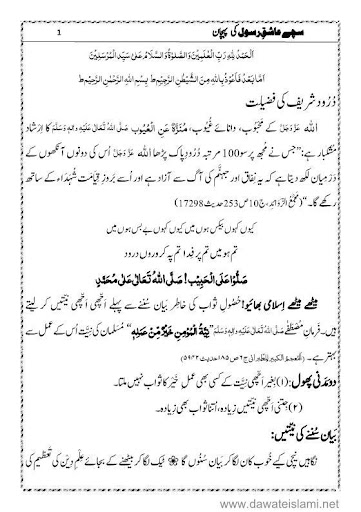 سچے عاشقِ رسول کی پہچان 1
اَلْحَمْدُ لِلّٰہِ رَبِّ الْعٰلَمِیْنَ وَالصَّلٰوۃُ وَالسَّلَامُ عَلٰی سَیِّدِ الْمُرْسَلِیْنَ
اَمَّا بَعْدُ فَاَعُوْذُ بِاللّٰہِ مِنَ الشَّیْطٰنِ الرَّجِیْمِ ط بِسْمِ اللّٰہِ الرَّحْمٰنِ الرَّحِیْمِ ط
دُرُود شریف کی فضیلت
اللہ عَزَّوَجَلَّ کے مَحْبُوب، دانائے غُیُوب، مُنَزَّہٌ عَنِ الْعُیُوب صَلَّی اللہُ تَعَالٰی عَلَیْہِ وَاٰلِہٖ وَسَلَّمَ کا اِرشادِ
مُشکبار ہے: ’’جس نے مجھ پر سو 100 مرتبہ دُرُودِ پاک پڑھا اللہ عَزَّوَجَلَّ اُس کی دونوں آنکھوں کے
درمیان لکھ دیتا ہے کہ یہ نِفاق اور جہنَّم کی آگ سے آزاد ہے اور اُسے بروزِ قِیامت شُہَداء کے ساتھ
رکھے گا۔‘‘ (مَجْمَعُ الزَّوَائِد، ج10 ص253 حدیث 17298)
کیوں کہوں بیکس ہوں میں کیوں کہوں بے بس ہوں میں
تم ہو میں تم پر فِدا تم پہ کروروں درود
صَلُّوْا عَلَی الْحَبِیْب! صَلَّی اللہُ تَعَالٰی عَلٰی مُحَمَّد
میٹھے میٹھے اِسلامی بھائیو! حُصُولِ ثواب کی خاطر بیان سُننے سے پہلے اَچّھی اَچّھی نیّتیں کر لیتے
ہیں۔ فرمانِ مصطفٰے صَلَّی اللہُ تَعَالٰی عَلَیْہِ وَاٰلِہٖ وَسَلَّمَ ’’نِیَّۃُ الْمُؤْمِنِ خَیْرٌ مِّنْ عَمَلِہٖ‘‘ مُسَلمان کی نِیَّت اُس کے عمل سے
بہتر ہے۔ (اَلْمُعْجَمُ الْکَبِیْر لِلطَّبَرَانِی ج۶ ص۱۸۵ حدیث ۵۹۴۲)
دو مَدَنی پھول: (۱) بغیر اَچّھی نیّت کے کسی بھی عملِ خَیر کا ثواب نہیں ملتا۔
(۲) جتنی اَچّھی نیّتیں زیادہ، اُتنا ثواب بھی زیادہ۔
بَیان سُننے کی نیّتیں:
نگاہیں نیچی کیے خُوب کان لگا کر بیان سُنوں گا ٭ ٹیک لگا کر بیٹھنے کے بجائے علمِ دین کی تعظیم کی
www.dawateislami.net